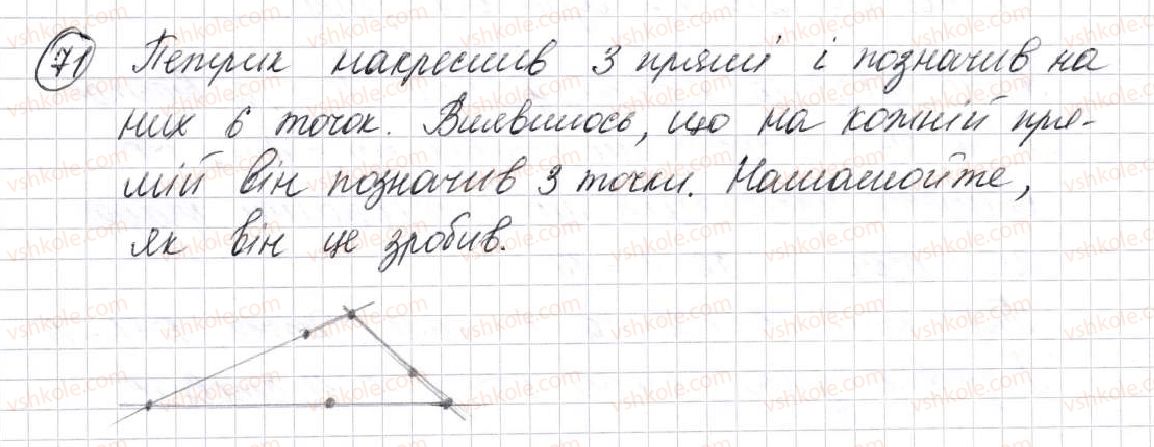 71 Петрик накреслив 3 прямі і позначив на
них 6 точок. Виявилось, що на кожній пря-
мій він позначив 3 точки. Намалюйте,
як він це зробив.